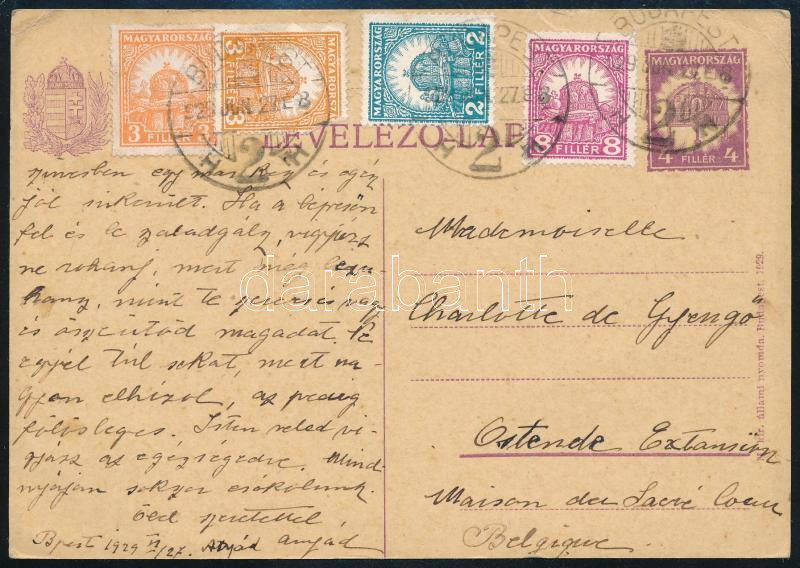 MAGYARORSZÁG
3 FILLÉR 3
MAGYARORSZÁG
3 FILLÉR 3
MAGYARORSZÁG
2 FILLÉR 2
MAGYARORSZÁG
8 FILLÉR 8
MAGYARORSZÁG
4 FILLÉR 4
BUDAPEST
929 JUN. 27. E 8
2
LEVELEZŐ-LAP
színesben egy más kep és egész
jól sikerült. Ha a lépcsőn
fel és le szaladgálsz, vigyázz
ne rohanj, mert még
mint te
és összeütöd magadat. Ne
egyél túl sokat, mert na-
gyon elhízol, az pedig
fölösleges. Isten veled vi-
gyázz az egészségedre. Mind-
nyájan sokszor csókolunk.
Ölel szeretettel
Bpest 1929 VI/27. anyád
Mademoiselle
Charlotte de Gyengő
Ostende Extansion
Maison du Sacré Coeur
Belgique
M. kir. állami nyomda. Budapest. 1929.
darabanth